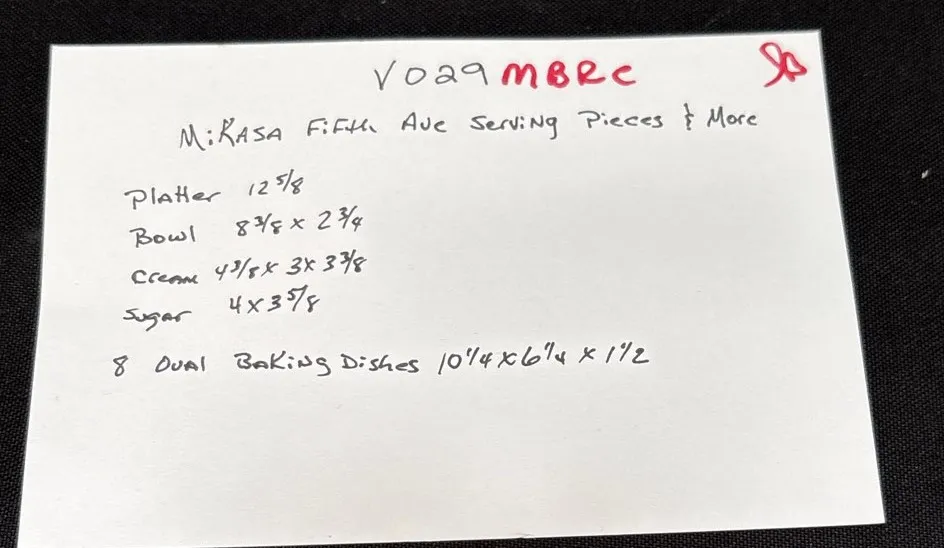 V029 MBRC
MiKASA FiFth Ave Serving Pieces & More
Platter 12 5/8
Bowl 8 3/8 x 2 3/4
Cream 4 3/8 x 3 x 3 3/8
Sugar 4 x 3 5/8
8 Oval Baking Dishes 10 1/4 x 6 1/4 x 1 1/2